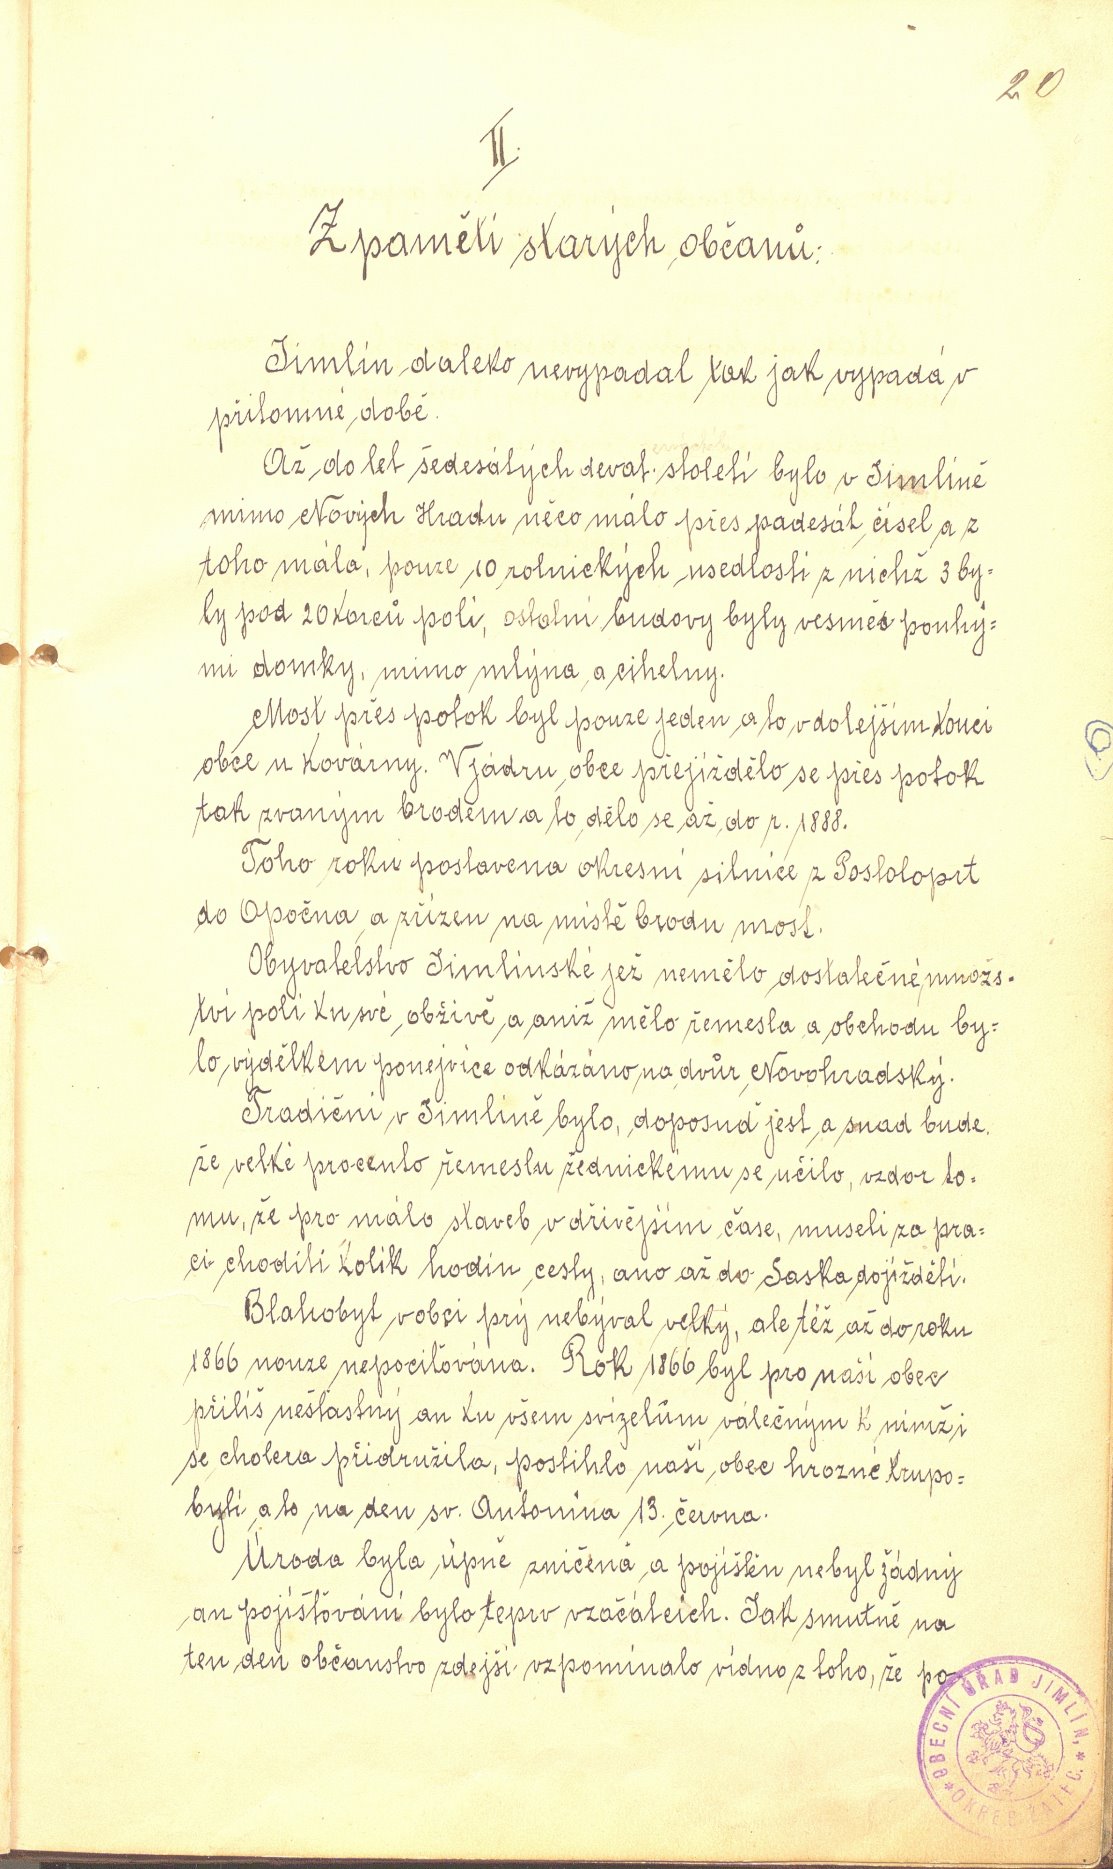 20
II.
Z paměti starých občanů:
Jimlín daleko nevypadal tak jak vypadá v
přítomné době.
Až do let šedesátých devat. století bylo v Jimlíně
mimo Nových Hradů něco málo přes padesát čísel a z
toho mála, pouze 10 rolnických usedlostí z nichž 3 by=
ly pod 20 korců polí, ostatní budovy byly vesměs pouhý=
mi domky, mimo mlýna a cihelny.
Most přes potok byl pouze jeden a to v dolejším konci
obce u kovárny. V jádru obce přejíždělo se přes potok
tak zvaným brodem a to dělo se až do r. 1888.
Toho roku postavena okresní silnice z Postoloprt
do Opočna a zřízen na místě brodu most.
Obyvatelstvo Jimlínské jež nemělo dostatečné množs-
tví polí ku své obživě a aniž mělo řemesla a obchodu by=
lo výdělkem ponejvíce odkázáno na dvůr Novohradský.
Tradiční v Jimlíně bylo, doposud jest a snad bude.
že velké procento řemeslu zednickému se učilo, vzdor to-
mu, že pro málo staveb v dřívějším čase, museli za pra=
cí choditi kolik hodin cesty, ano až do Saska dojížděti.
Blahobyt v obci prý nebýval velký, ale též až do roku
1866 nouze nepociťována. Rok 1866 byl pro naší obec
příliš nešťastný an ku všem svízelům válečným k nimž i
se cholera přidružila, postihlo naší obec hrozné krupo=
bytí a to na den sv. Antonína 13. června.
Úroda byla úpně zničená a pojištěn nebyl žádný
an pojišťování bylo teprv v začátcích. Jak smutně na
ten den občanstvo zdejší vzpomínalo vidno z toho, že po-
OBECNÍ ÚŘAD JIMLÍN,
* OKRES ŽATEC. *